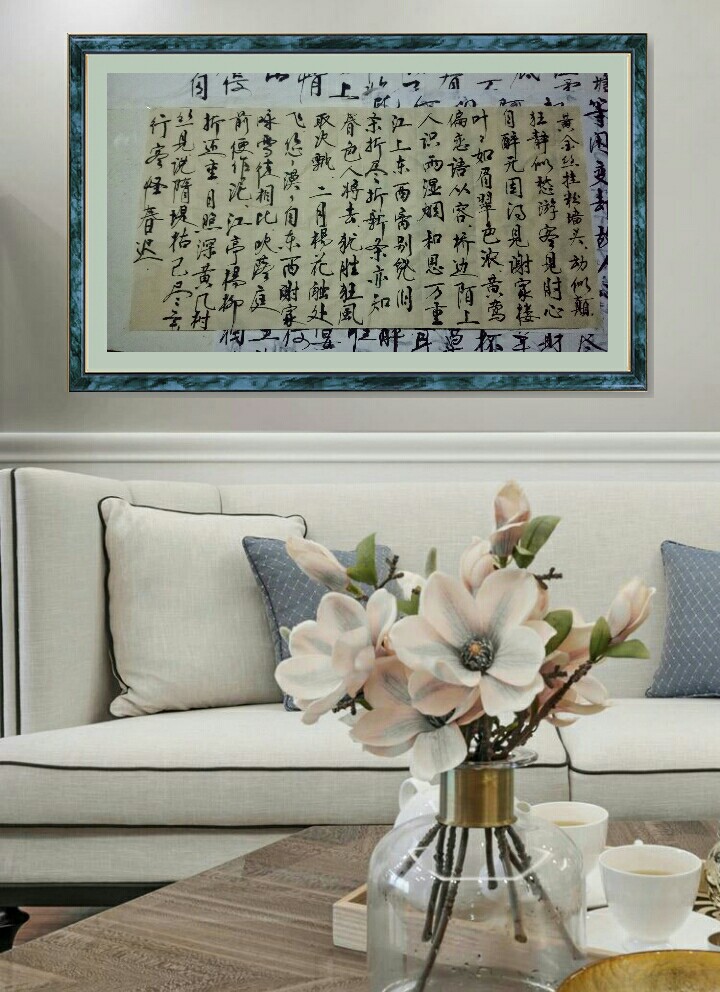 等闲变却故人
黄金丝挂粉墙头动似颠
狂静似愁游客见时心
自醉无因得见谢家楼
叶叶如眉翠色浓黄莺
偏恋语从容桥边陌上
人识雨湿烟和思万重
江上东西离别绕旧
条折尽折新条亦知
春色人将去犹胜狂风
取次飘二月杨花触处
飞悠悠漠漠自东西谢家
咏雪徒相比吹落庭
前便作泥江亭杨柳
折还垂月照深黄几树
丝见说隋堤枯已尽
行客怪春迟